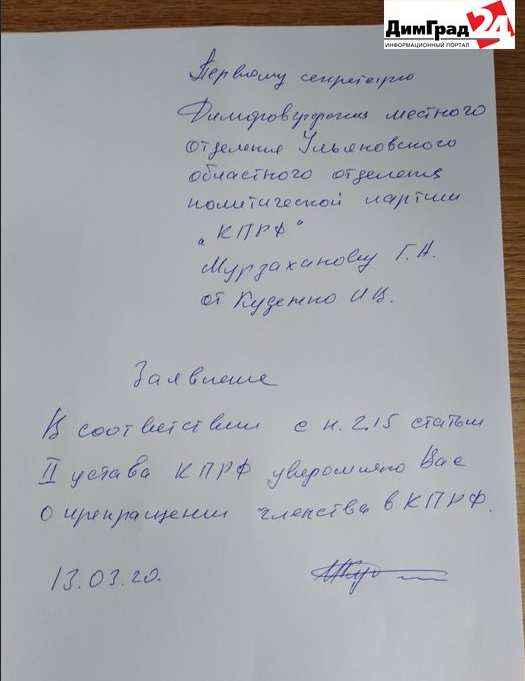 ДимГрад 24
ИНФОРМАЦИОННЫЙ ПОРТАЛ
Первому секретарю
Димитровградского местного
отделения Ульяновского
областного отделения
политической партии
„КПРФ"
Мурзаханову Г.А.
от Куденко И.Ц.
Заявление
В соответствии с п. 2.15 статьи
II устава КПРФ уведомляю Вас
о прекращении членства в КПРФ.
13.03.20.